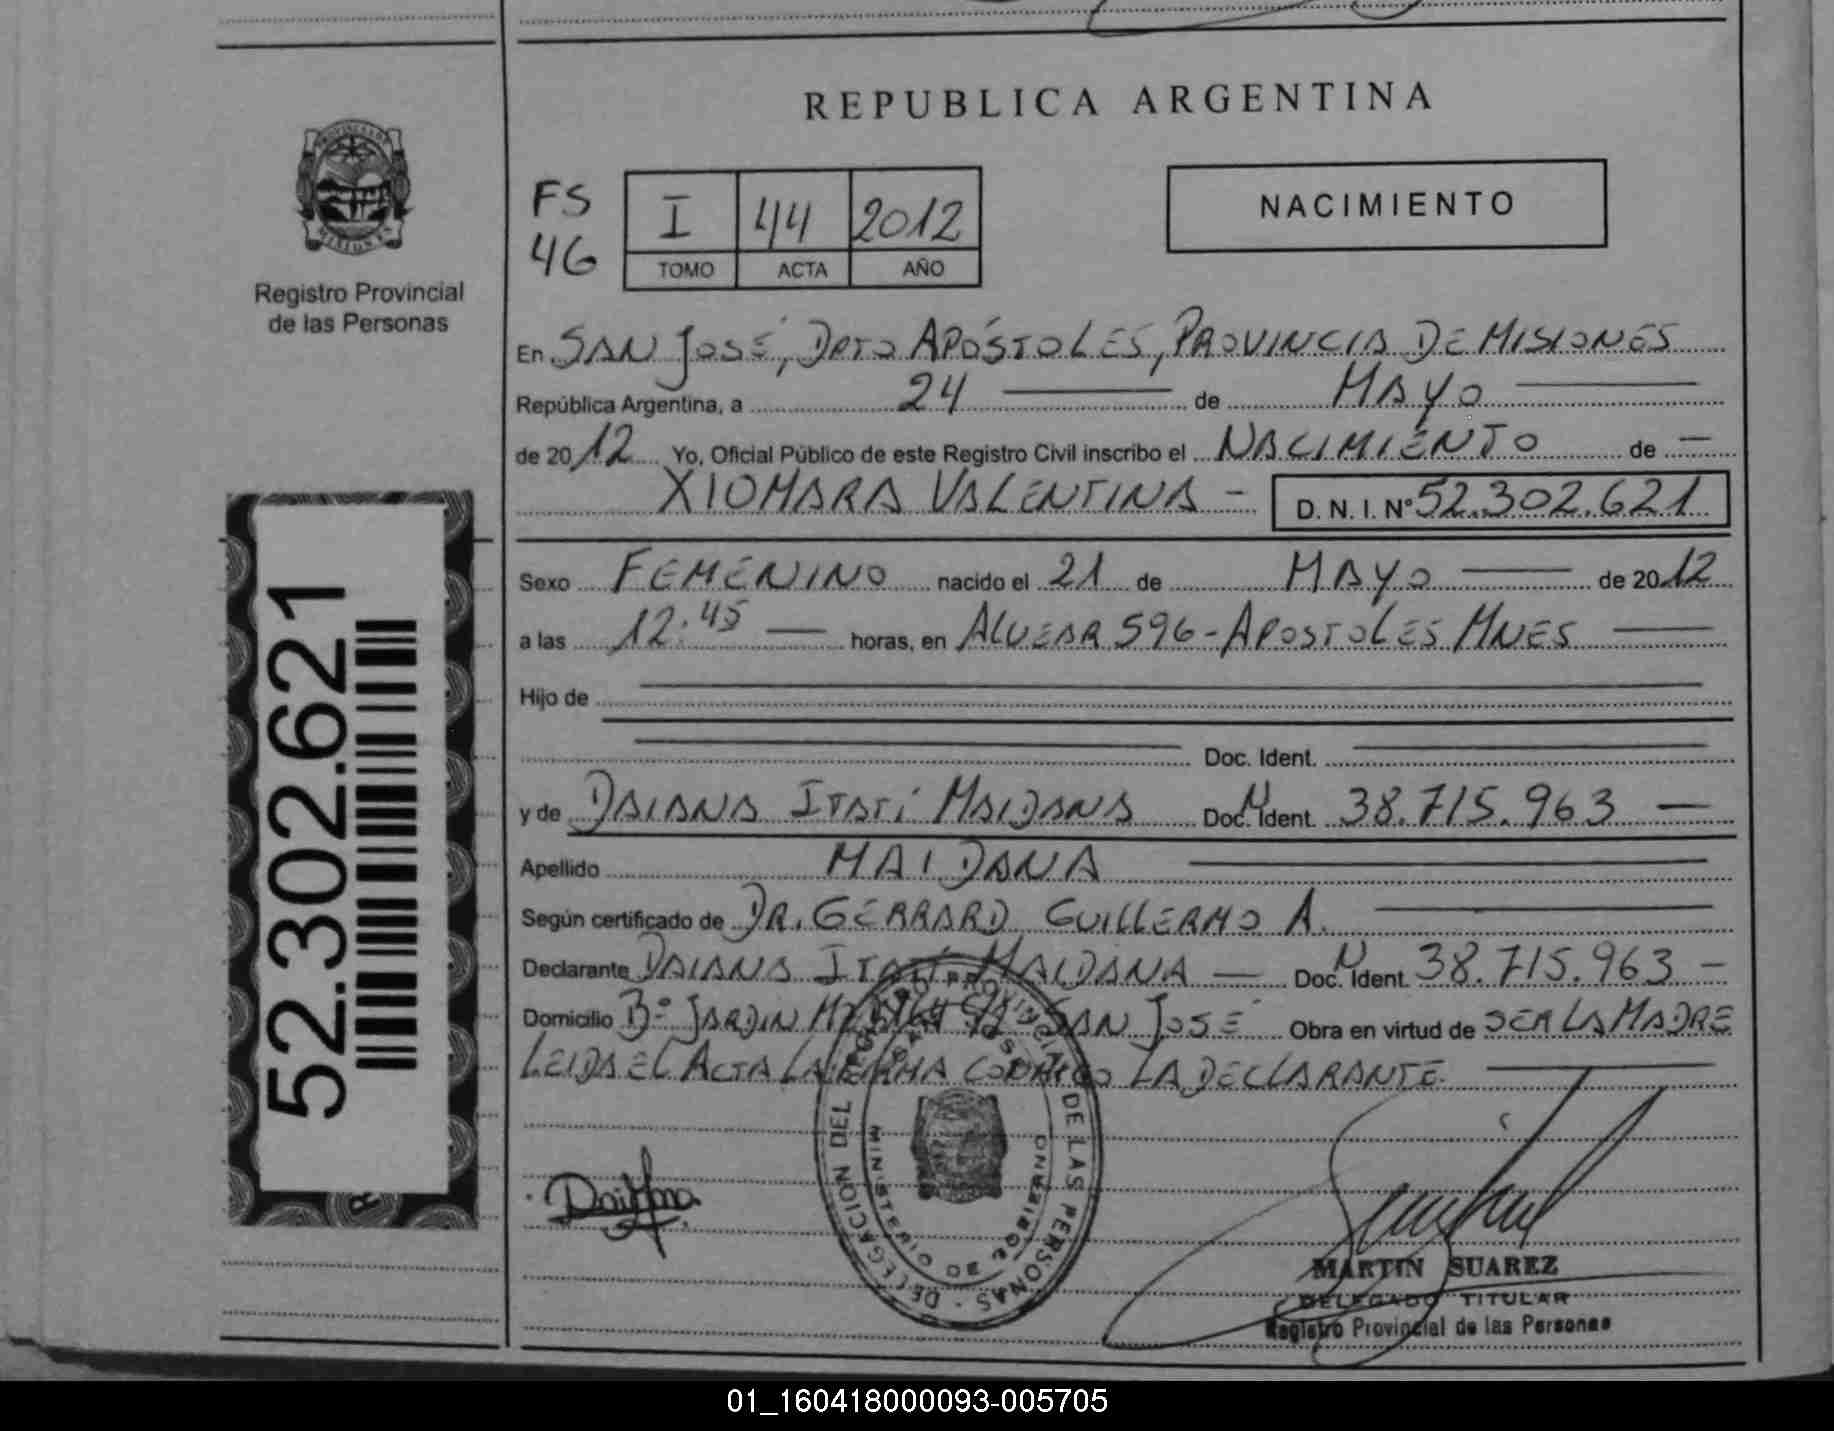 REPUBLICA ARGENTINA
PROVINCIA DE MISIONES
Registro Provincial
de las Personas
FS
46
I 44 2012
TOMO ACTA AÑO
NACIMIENTO
En SAN JOSÉ, DPTO APÓSTOLES, PROVINCIA DE MISIONES
República Argentina, a 24 de MAYO
de 2012 Yo, Oficial Público de este Registro Civil inscribo el NACIMIENTO de
XIOMARA VALENTINA - D. N. I. Nº 52.302.621
Sexo FEMENINO nacido el 21 de MAYO de 2012
a las 12:45 horas, en ALVEAR 596 - APOSTOLES MNES
Hijo de
Doc. Ident.
y de DAIANA ITATÍ MAIDANA Doc. N Ident. 38.715.963
Apellido MAIDANA
Según certificado de DR. GERRARD GUILLERMO A.
Declarante DAIANA ITATÍ MAIDANA Doc. N Ident. 38.715.963
Domicilio Bº JARDIN SAN JOSÉ Obra en virtud de SER LA MADRE
LEIDA EL ACTA LA FIRMA CONMIGO LA DECLARANTE.
52.302.621
DELEGACION DEL REGISTRO PROVINCIAL DE LAS PERSONAS
SAN JOSE
MINISTERIO DE GOBIERNO
MARTIN SUAREZ
DELEGADO TITULAR
Registro Provincial de las Personas
01_160418000093-005705